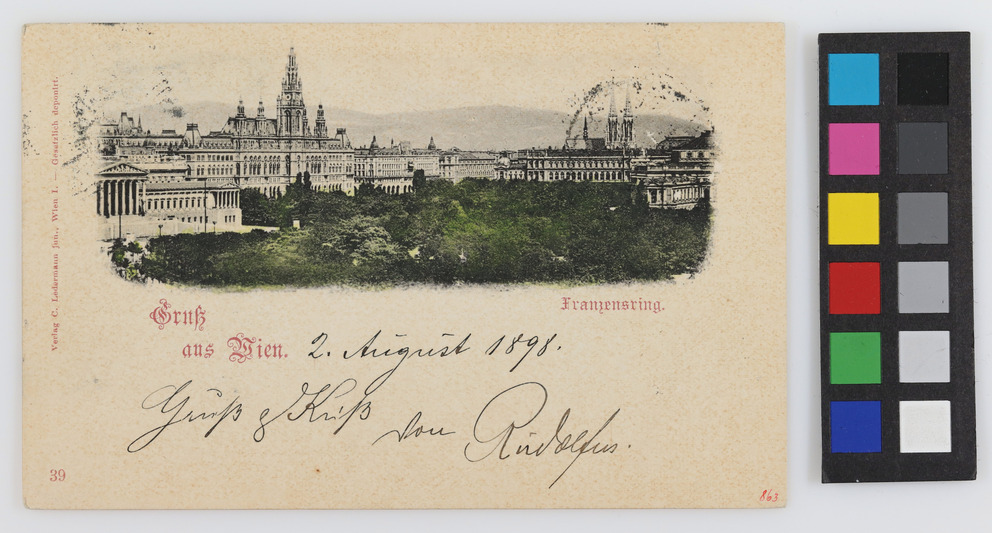 Verlag C. Ledermann jun., Wien I. — Gesetzlich deponirt.
Gruß
aus Wien.
Franzensring.
2. August 1898.
Gruß & Kuß
von Rudolfus.
39
863